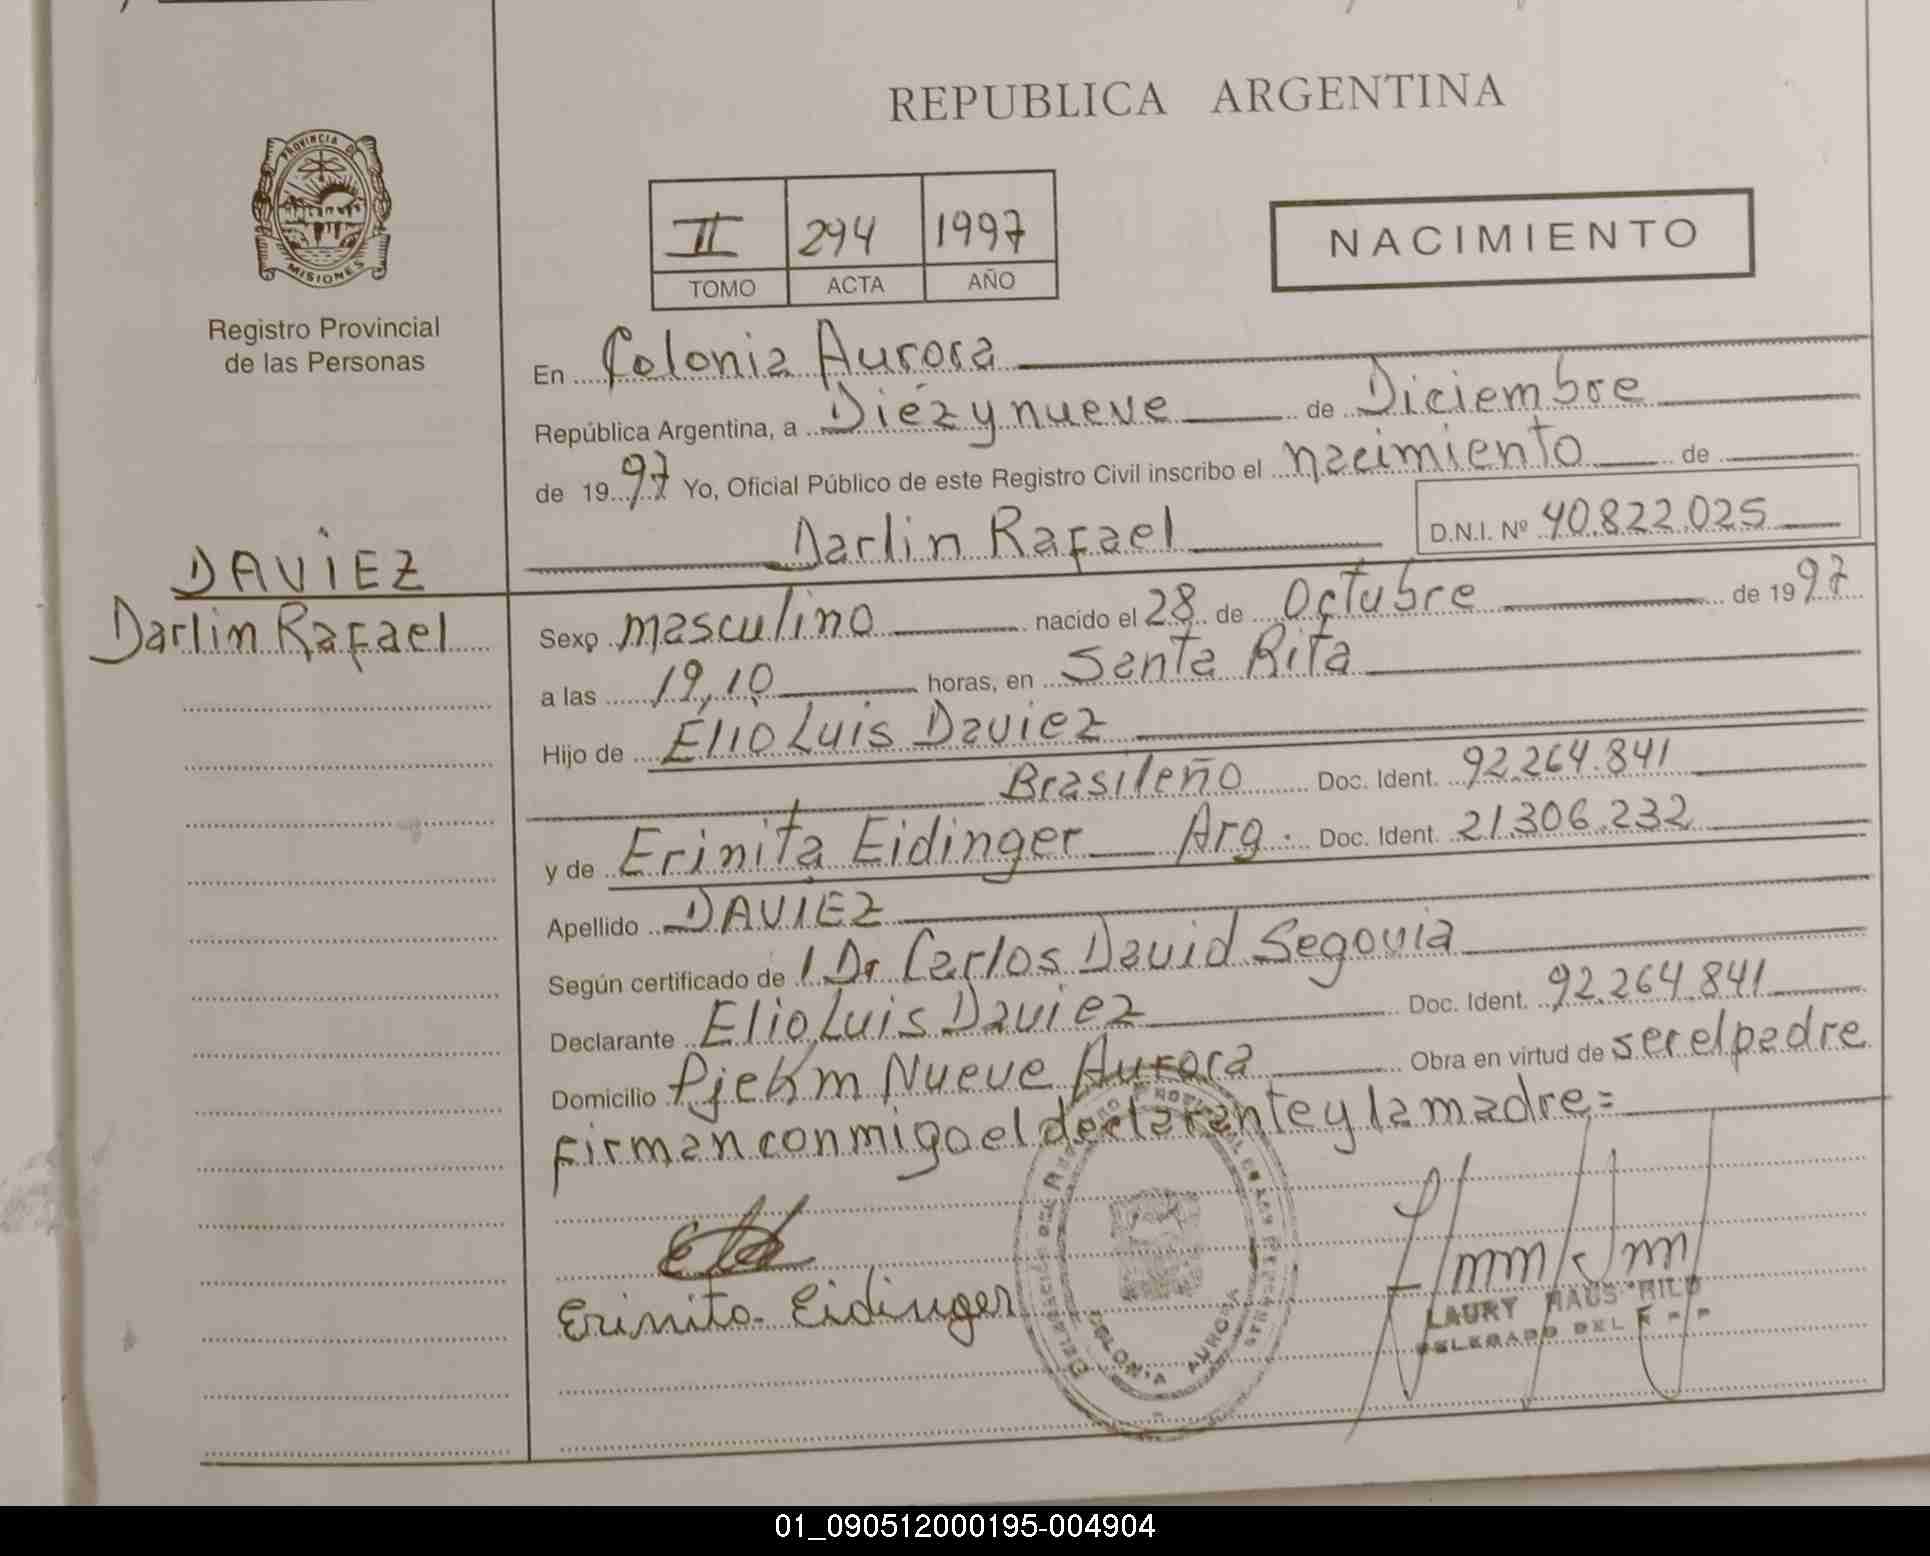 REPUBLICA ARGENTINA
PROVINCIA DE
MISIONES
Registro Provincial
de las Personas
II 294 1997
TOMO ACTA AÑO
NACIMIENTO
En Colonia Aurora
República Argentina, a Diez y nueve de Diciembre
de 1997 Yo, Oficial Público de este Registro Civil inscribo el nacimiento de
Darlin Rafael D.N.I. Nº 40.822.025
DAVIEZ
Darlin Rafael
Sexo masculino nacido el 28 de Octubre de 1997
a las 19,10 horas, en Santa Rita
Hijo de Elio Luis Daviez
Brasileño Doc. Ident. 92.264.841
y de Erinita Eidinger Arg. Doc. Ident. 21.306.232
Apellido DAVIEZ
Según certificado de Dr Carlos David Segovia
Declarante Elio Luis Daviez Doc. Ident. 92.264.841
Domicilio PjeKm Nueve Aurora Obra en virtud de ser el padre
firman conmigo el declarante y la madre=
Erinita Eidinger
COLONIA AURORA
LAURY HAUS
DELEGADO DEL
01_090512000195-004904